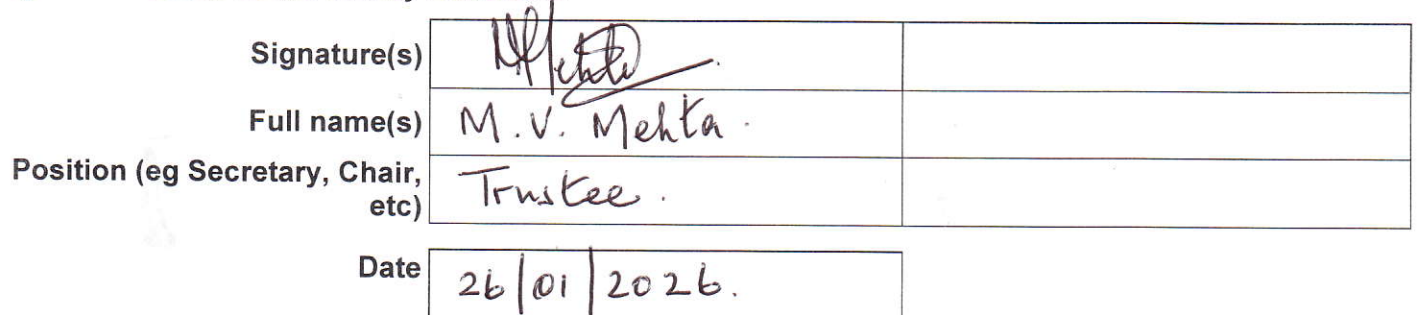 Signature(s)
Full name(s) M. V. Mehta.
Position (eg Secretary, Chair, Trustee.
etc)
Date 26/01/2026.